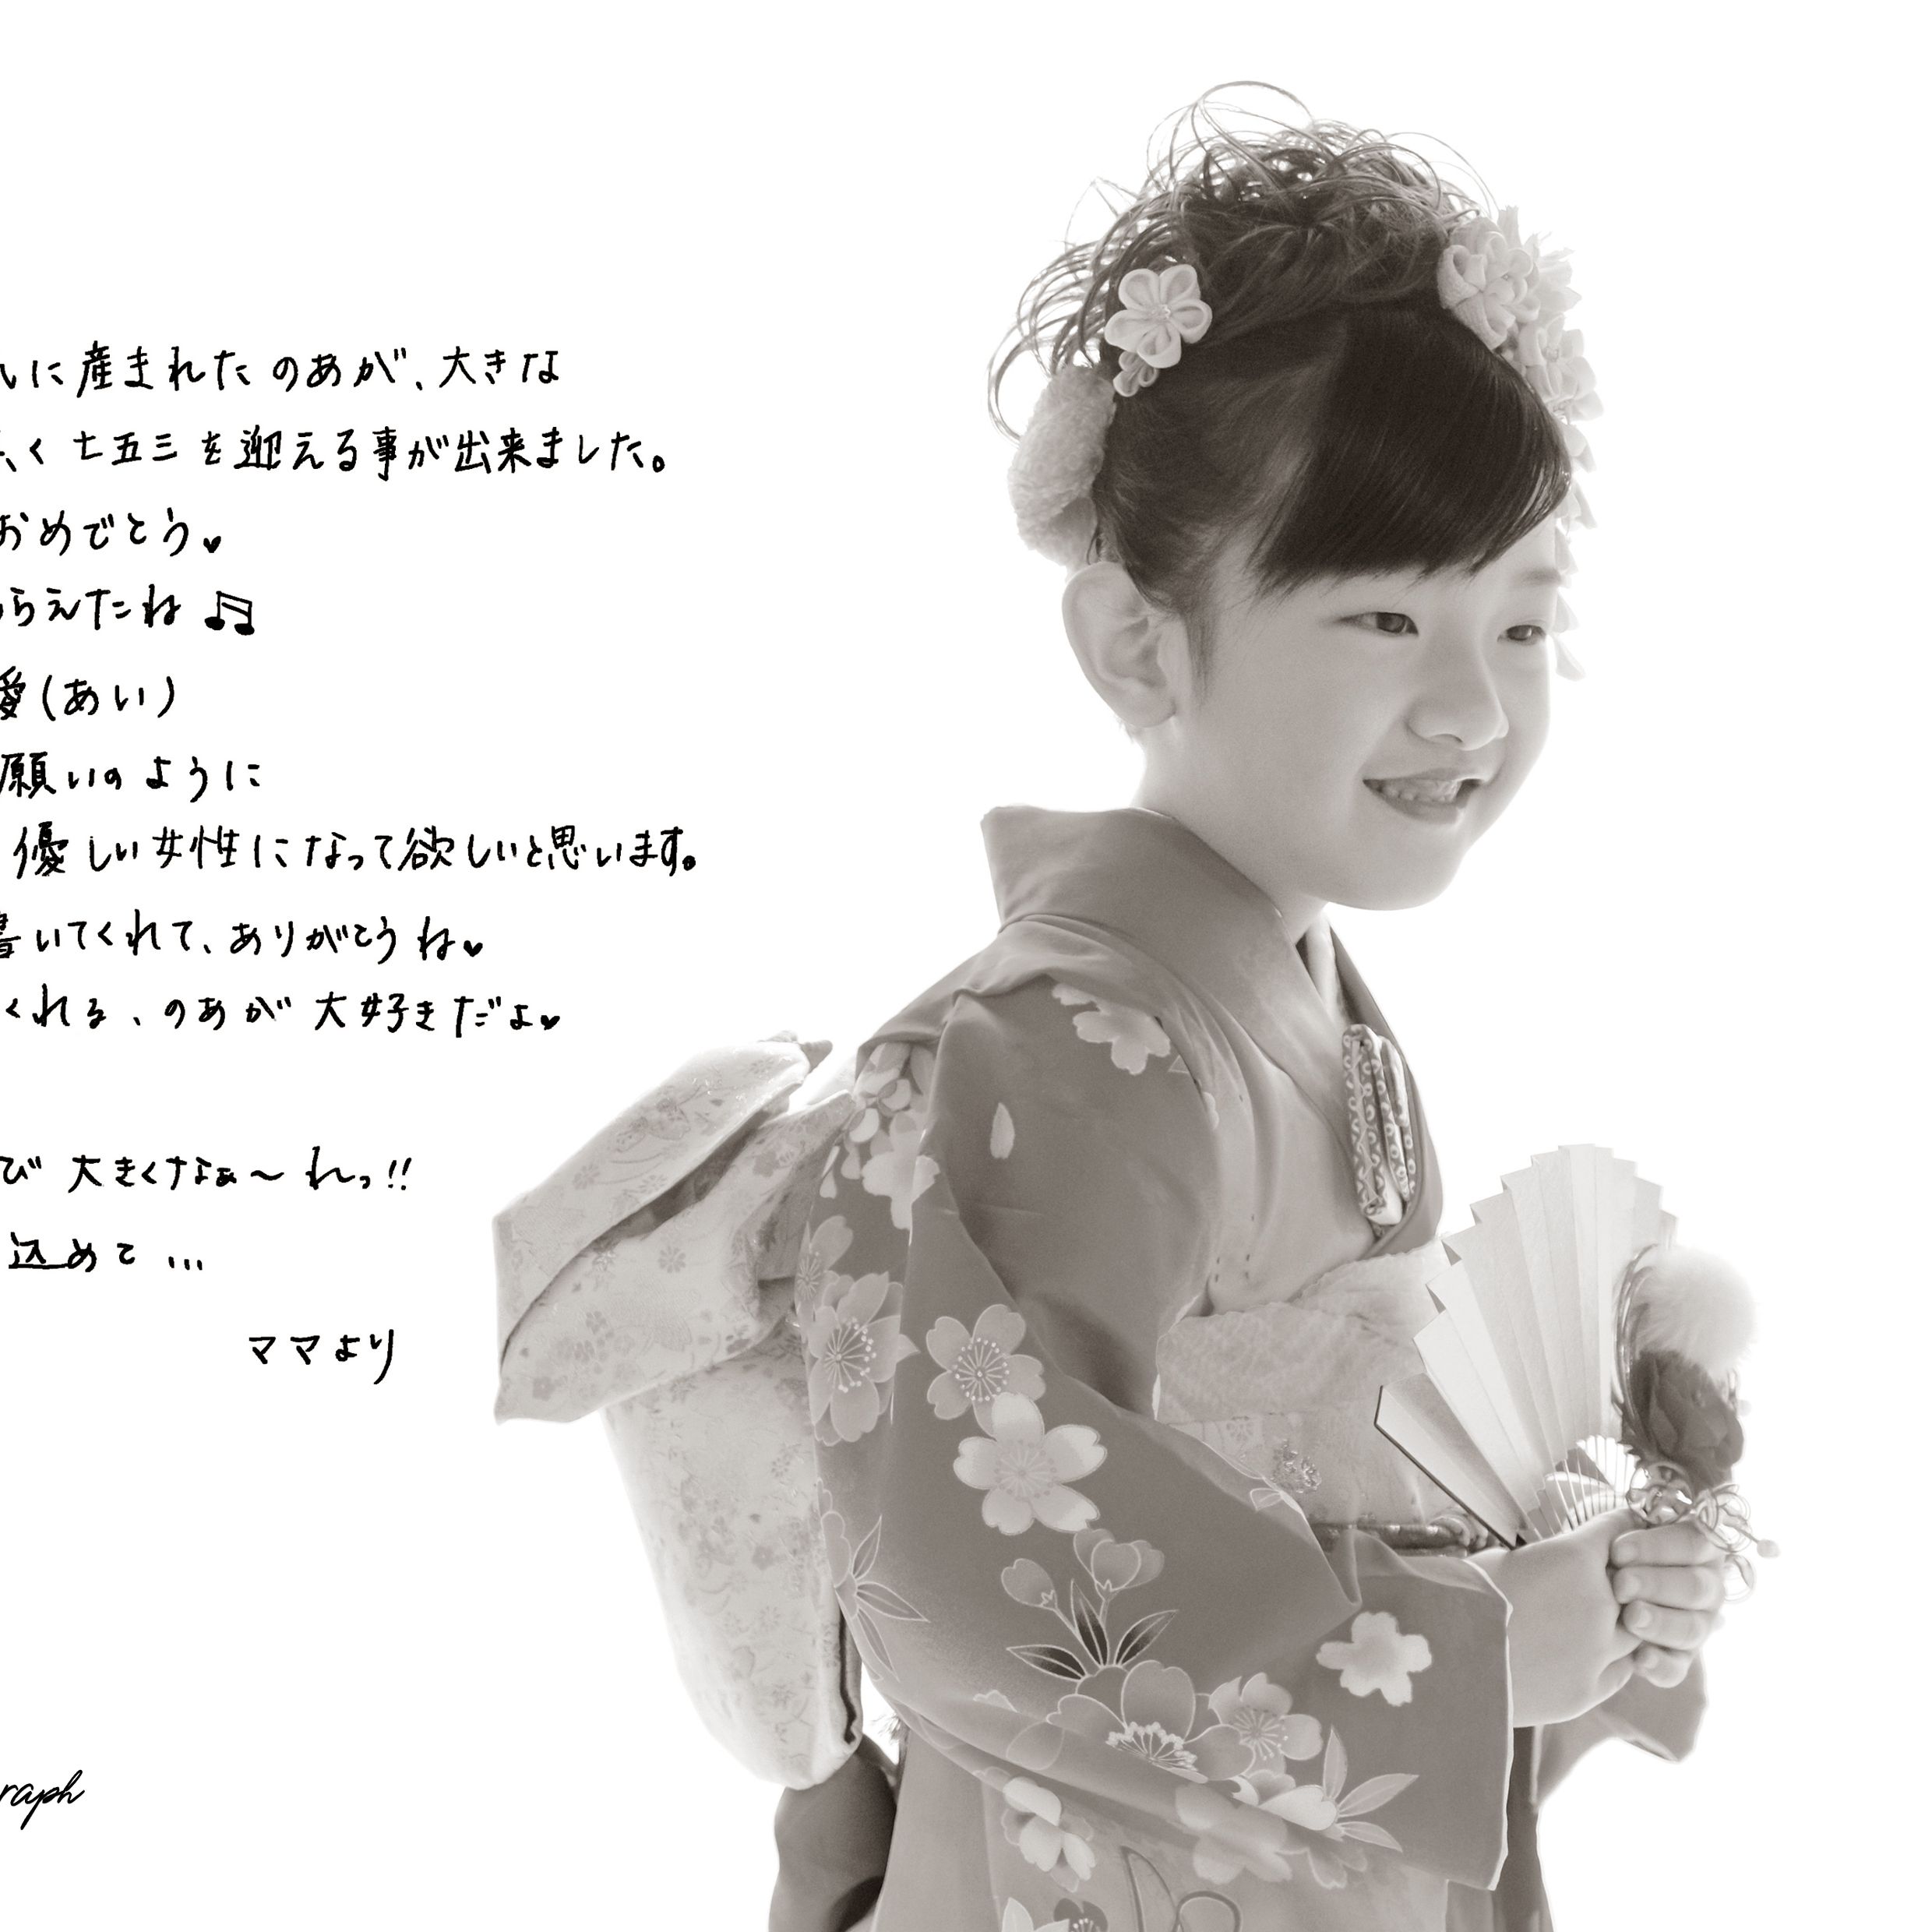 いに産まれた のあが、大きな
く 七五三 を迎える事が出来ました。
おめでとう♥
らえたね ♫
愛(あい)
願いの ように
優しい女性になって欲しいと思います。
書いてくれて、ありがとうね♥
くれる、のあが 大好きだよ♥
び 大きくなぁ〜れっ!!
込めて …
ママより
raph